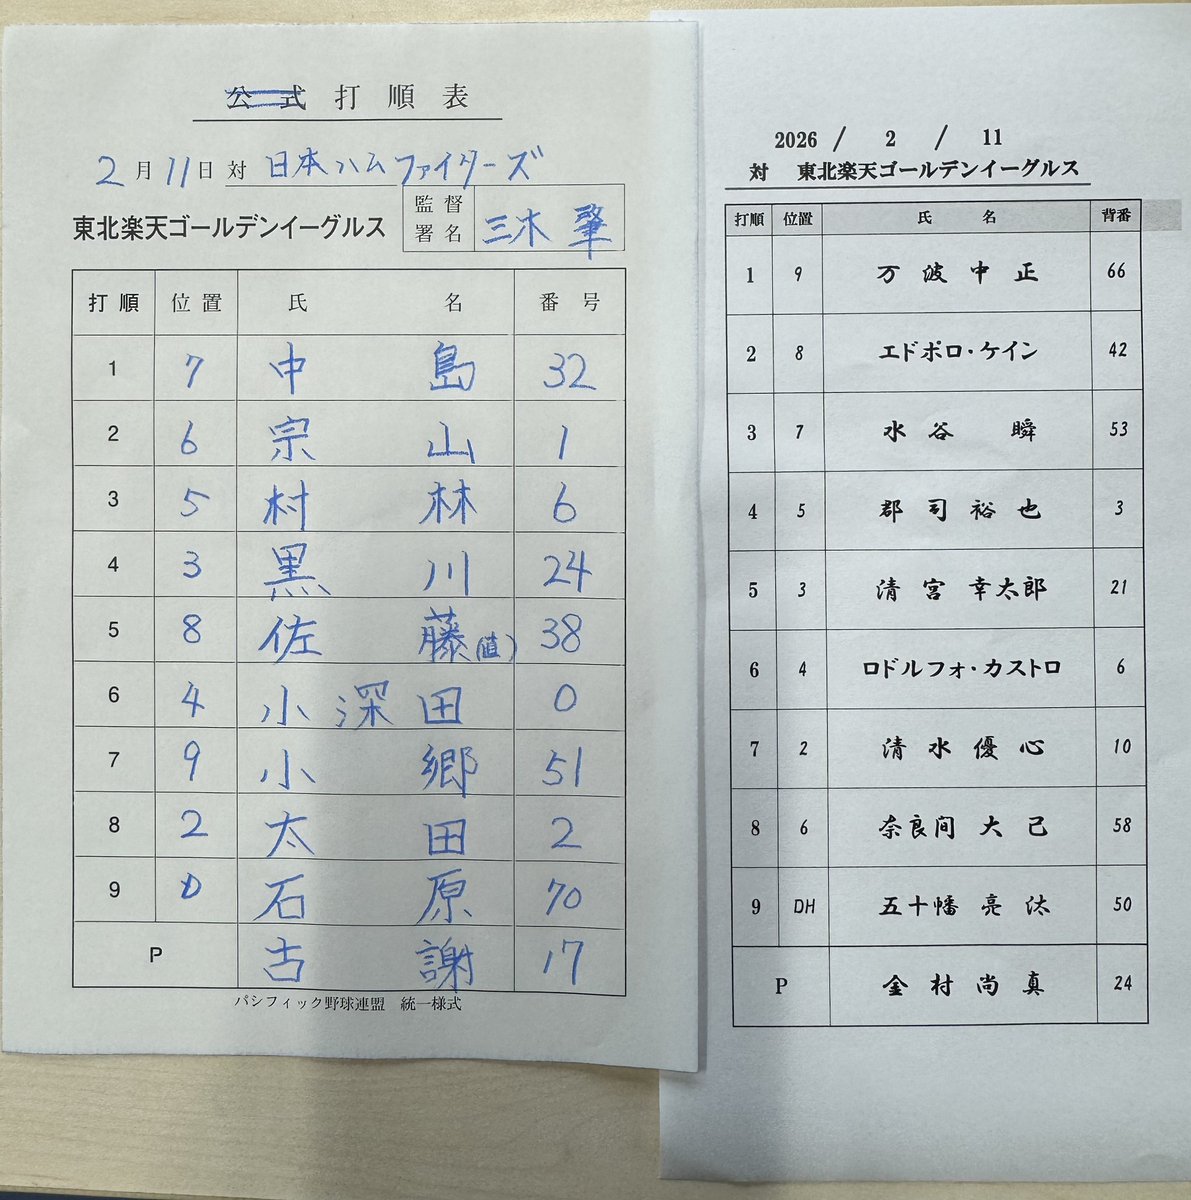 公式打順表
2月11日対 日本ハムファイターズ
東北楽天ゴールデンイーグルス 監督署名 三木 肇
打順 位置 氏名 番号
1 7 中島 32
2 6 宗山 1
3 5 村林 6
4 3 黒川 24
5 8 佐藤(直) 38
6 4 小深田 0
7 9 小郷 51
8 2 太田 2
9 D 石原 70
P 古謝 17
パシフィック野球連盟 統一様式
2026 / 2 / 11
対 東北楽天ゴールデンイーグルス
打順 位置 氏名 背番
1 9 万波中正 66
2 8 エドポロ・ケイン 42
3 7 水谷瞬 53
4 5 郡司裕也 3
5 3 清宮幸太郎 21
6 4 ロドルフォ・カストロ 6
7 2 清水優心 10
8 6 奈良間大己 58
9 DH 五十幡亮汰 50
P 金村尚真 24